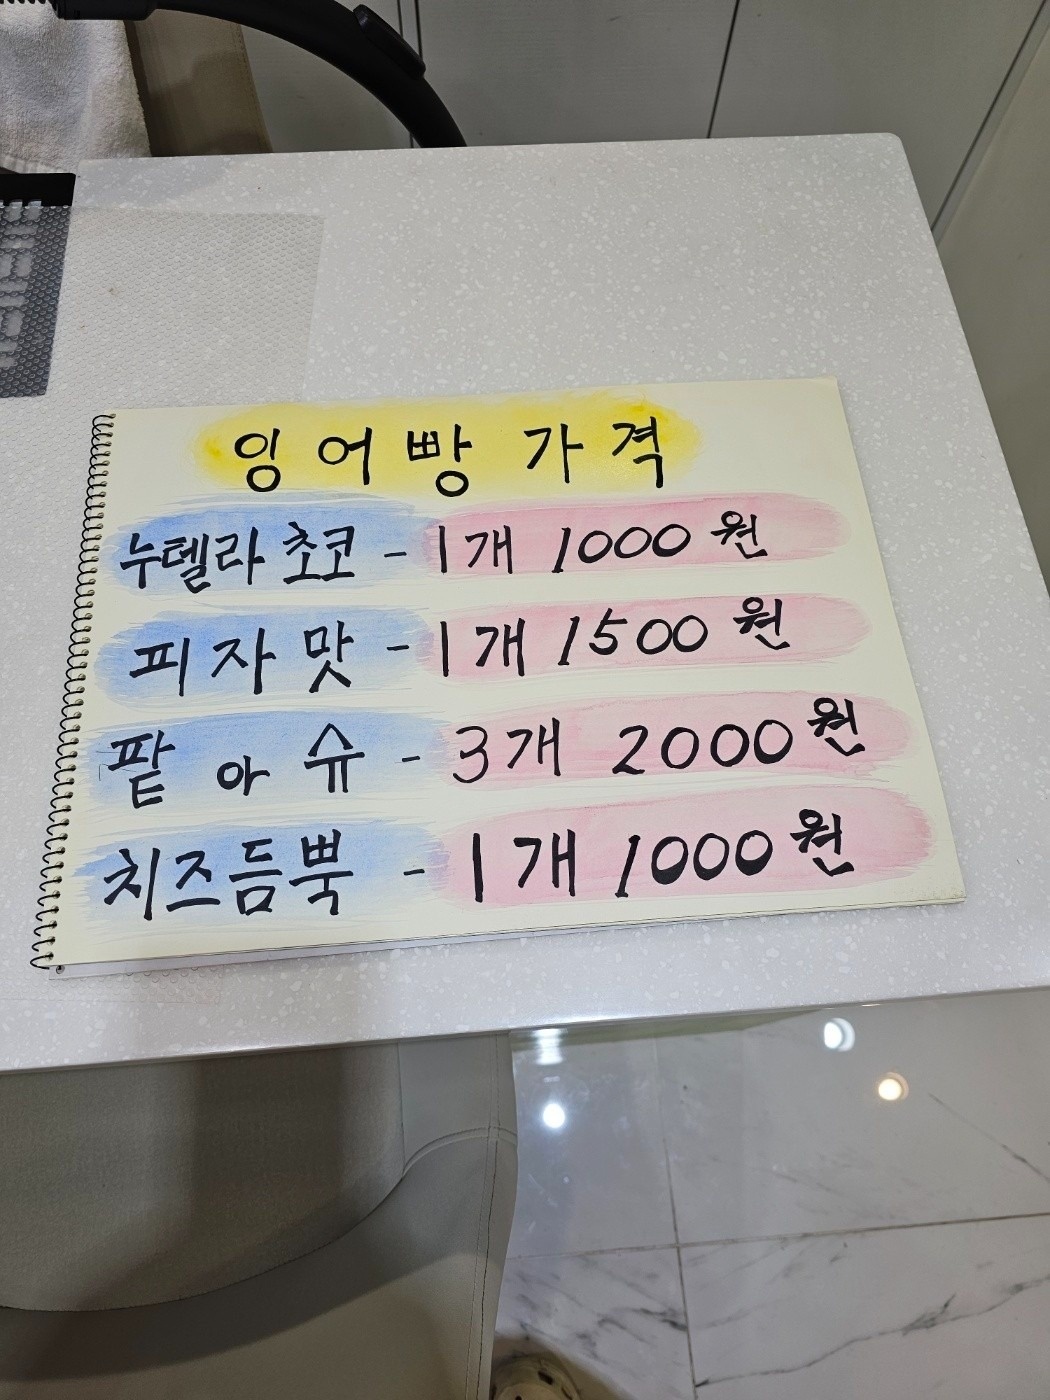 잉어빵 가격
누텔라 초코 - 1개 1000원
피자맛 - 1개 1500원
팥 아 슈 - 3개 2000원
치즈듬뿍 - 1개 1000원